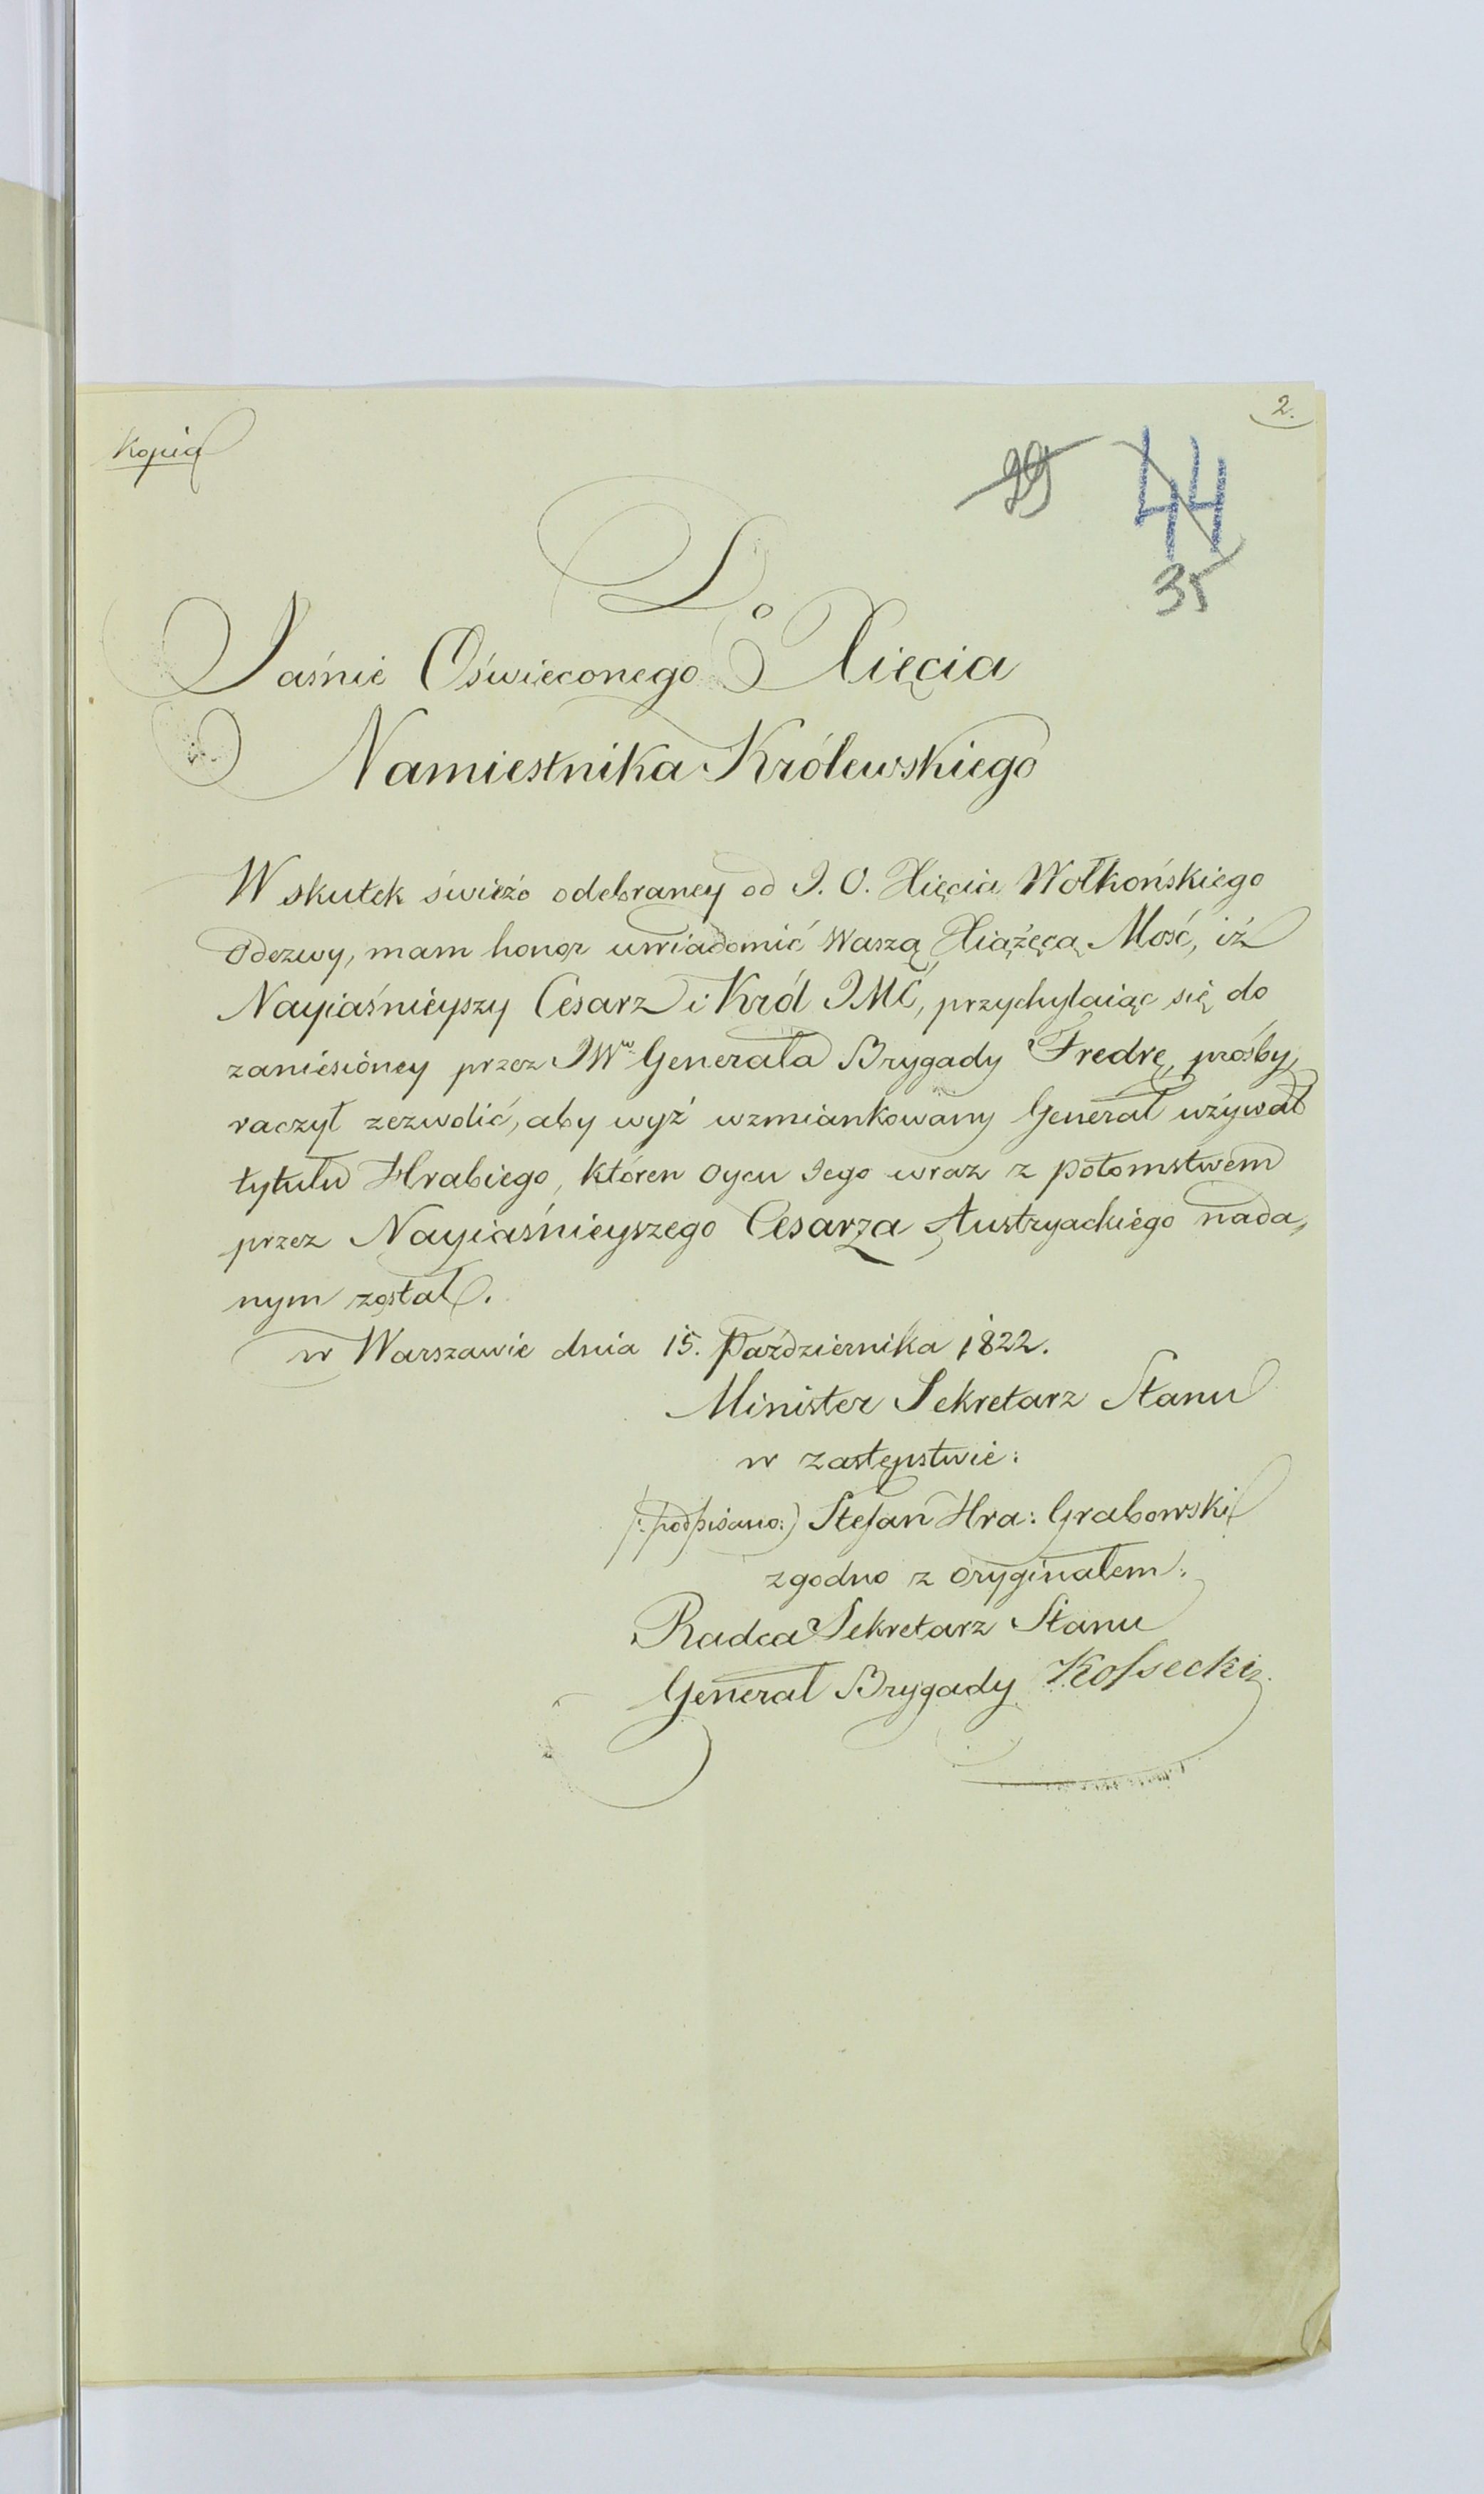 2.
Kopia
29
44
35
Do
Jaśnie Oświeconego Xięcia
Namiestnika Królewskiego
W skutek świeżo odebraney od J. O. Xięcia Wołkońskiego
Odezwy, mam honor uwiadomić Waszą Xiążęcą Mość, iż
Nayiaśnieyszy Cesarz i Król JMC, przychylaiąc się do
zaniesioney przez JWo Generała Brygady Fredrę, prośby,
raczył zezwolić, aby wyż wzmiankowany Generał używał
tytułu Hrabiego, któren oycu Jego wraz z potomstwem
przez Nayiaśnieyszego Cesarza Austryackiego nada„
nym został.
w Warszawie dnia 15. Października 1822.
Minister Sekretarz Stanu
w zastępstwie:
(:podpisano:) Stefan Hra: Grabowski
zgodno z oryginałem:
Radca Sekretarz Stanu
Generał Brygady Kossecki